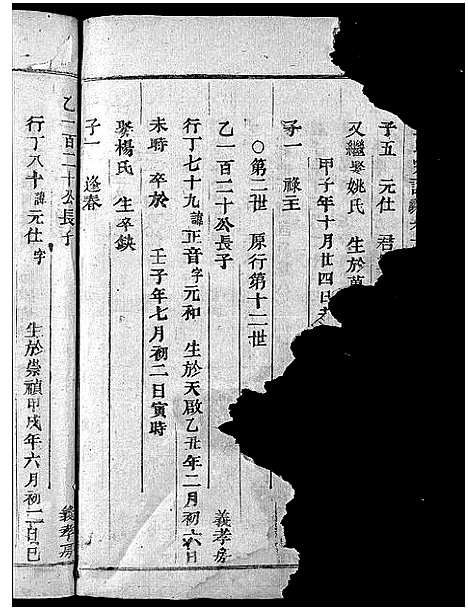 子五 元仕 君
又繼娶姚氏 生於萬
甲子年十月廿四日
子一 祿主
○第二世 原行第十二世
乙一百二十公長子
行丁七十九諱正音字元和 生於天啟乙丑年二月初六日 義孝房
未時 卒於 壬子年七月初二日寅時
娶楊氏 生卒缺
子一 逢春
乙一百二十公長子
行丁八十諱元仕字 生於崇禎甲戌年六月初二日巳 義孝房